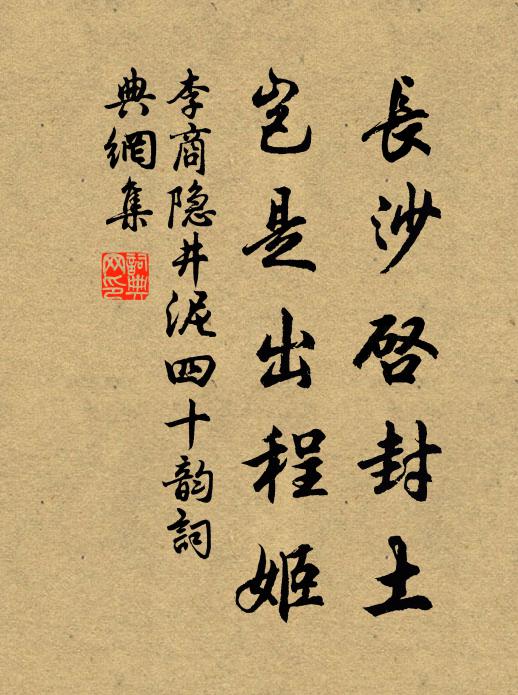 長沙啓封土
岂是出程姬
李商隐井泥四十韵詞
典網集
詞典
网印